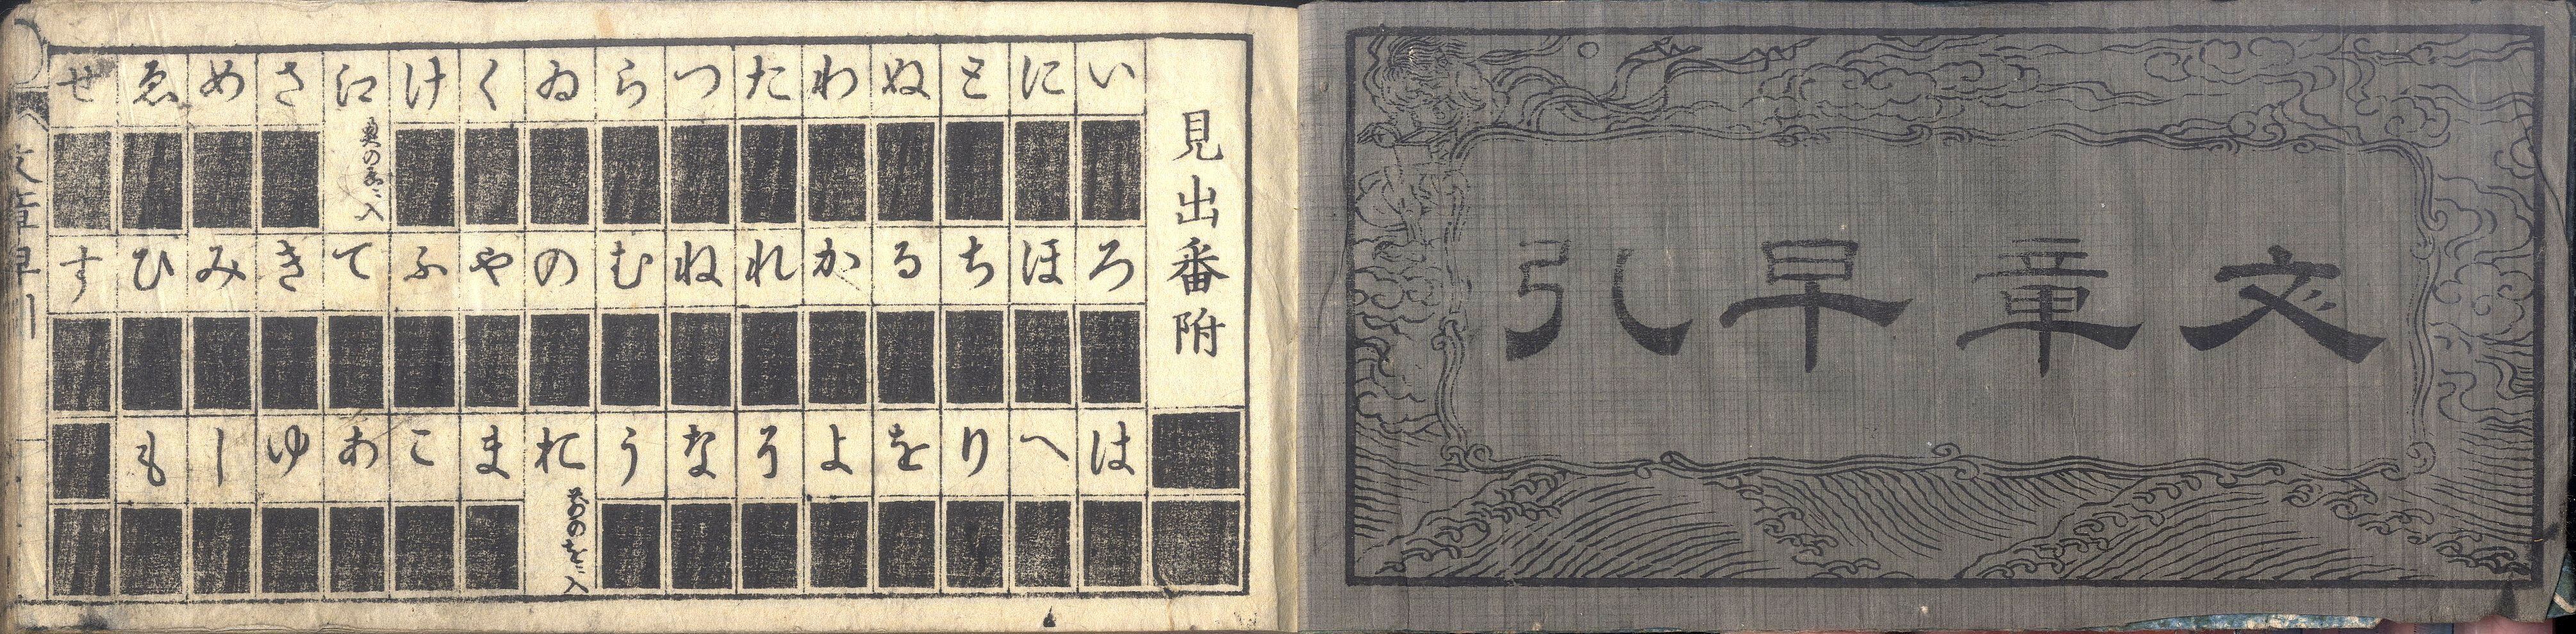 文章早引
見出番附
いろは
にほへ
とちり
ぬるを
わかよ
たれそ
つねな
らむう
ゐのお
くやま
けふこ
江てあ
奥のゑニ入
さきゆ
めみし
ゑひも
せす
文章早引